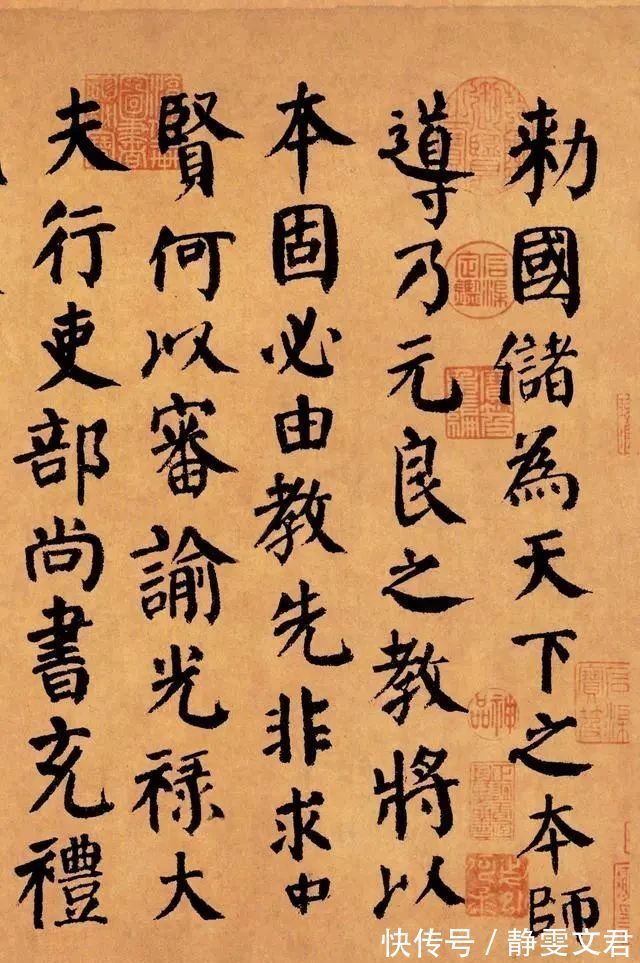 勅國儲為天下之本師
導乃元良之教將以
本固必由教先非求中
賢何以審諭光祿大
夫行吏部尚書充禮
神品
快传号 / 静雯文君